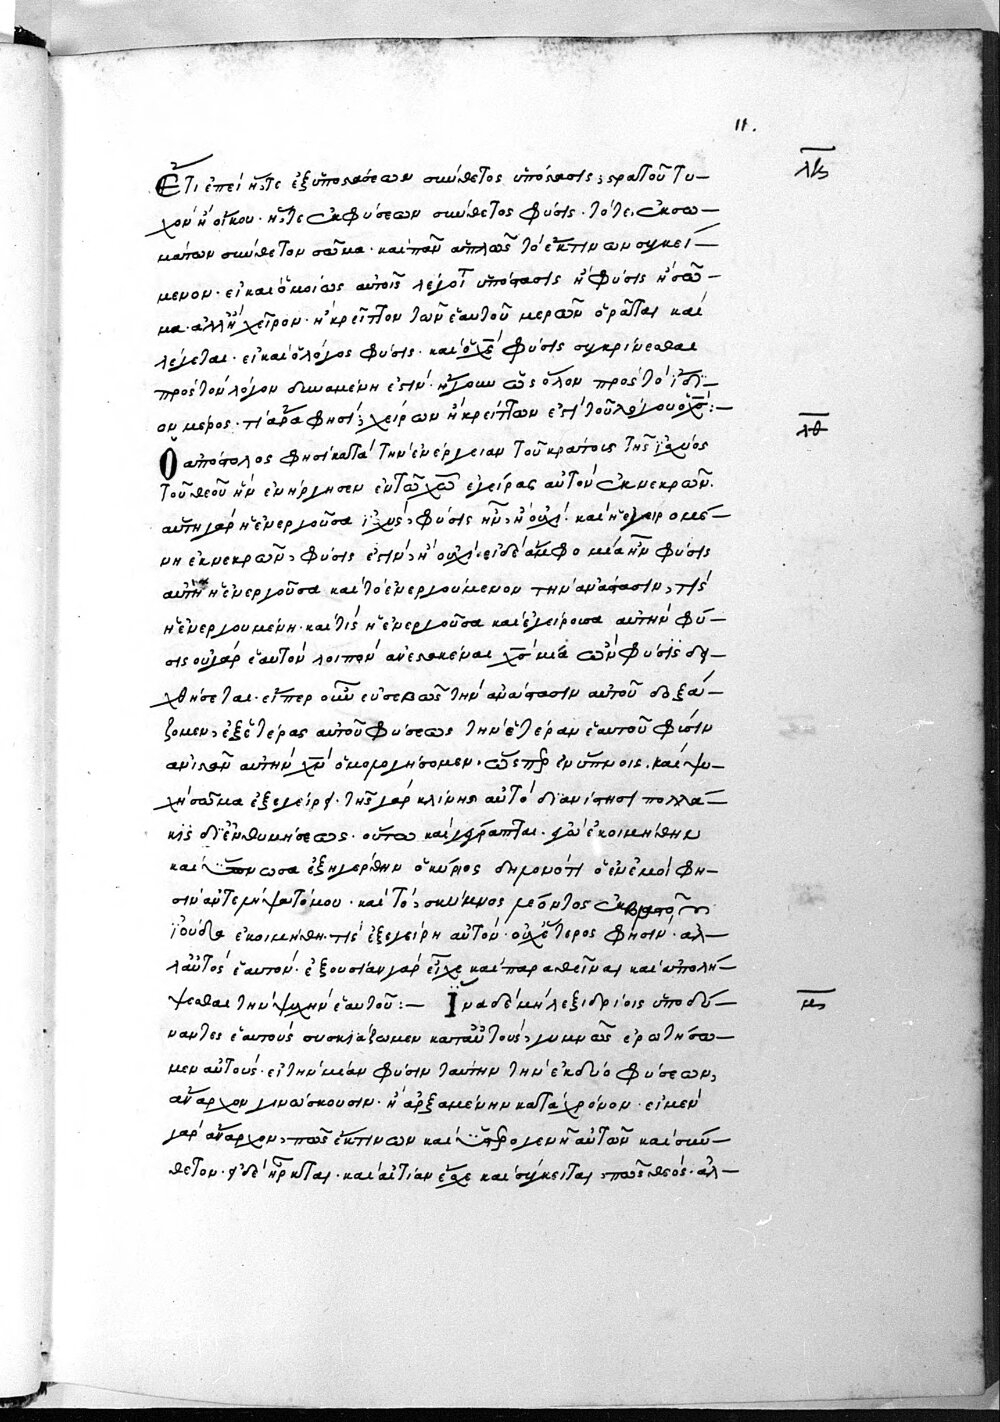 11.
Ἔτι ἐπεὶ ἥ τε ἐξ ὑποστάσεων σύνθετος ὑπόστασις, στρατοῦ τυ-
χὸν ἢ οἴκου· ἥ τε ἐκ φύσεων σύνθετος φύσις· τό τε ἐκ σω-
μάτων σύνθετον σῶμα· καὶ πᾶν ἁπλῶς τὸ ἔκ τινων συγκεί-
μενον· εἰ καὶ ὁμοίως αὐτοῖς λέγοιτο ὑπόστασις ἢ φύσις ἢ σῶ-
μα· ἀλλ' ἢ χεῖρον· ἢ κρεῖττον τῶν ἑαυτοῦ μερῶν ὁρᾶται καὶ
λέγεται· εἰ καὶ ὁ λόγος φύσις· καὶ ὁ χς φύσις συγκρίνεσθαι
πρὸς τὸν λόγον δυναμένη ἐστίν· ἤγουν ὡς ὅλον πρὸς τὸ ἴδι-
ον μέρος· τί ἄρα φησί; χείρων ἢ κρείττων ἐστὶ τοῦ λόγου ὁ χς:-
λθ
Ὁ ἀπόστολος φησὶ κατὰ τὴν ἐνέργειαν τοῦ κράτους τῆς ἰσχύος
τοῦ θεοῦ ἣν ἐνήργησεν ἐν τῶ χω ἐγείρας αὐτὸν ἐκ νεκρῶν.
αὕτη γὰρ ἡ ἐνεργοῦσα ἰσχύς, φύσις ἦν, ἢ οὐχί· καὶ ἡ ἐγειρομέ-
νη ἐκ νεκρῶν, φύσις ἐστίν, ἢ οὐχί· εἰ δὲ ἄμφω μία ἦν φύσις
αὐτὴ ἡ ἐνεργοῦσα καὶ τὸ ἐνεργούμενον τὴν ἀνάστασιν, τίς
ἡ ἐνεργουμένη· καὶ τίς ἡ ἐνεργοῦσα καὶ ἐγείρουσα αὐτήν φύ-
σις οὐ γὰρ ἑαυτὸν λοιπὸν ἀνεστακέναι χς μία ὢν φύσις δει-
χθήσεται· εἴπερ οὖν εὐσεβῶς τὴν ἀνάστασιν αὐτοῦ δοξά-
ζομεν, ἐξ ἑτέρας αὐτοῦ φύσεως τὴν ἑτέραν ἑαυτοῦ φύσιν
ἀνιστᾶν αὐτὴν χν ὁμολογήσομεν· ὥσπερ ἐν ὕπνοις· καὶ ψυ-
χὴ σῶμα ἐξεγείρει· τῆς γὰρ κλίνης αὐτὸ διανίστησι πολλά-
κις δι' ἐνθυμήσεως· οὕτω καὶ γέγραπται· ἐγὼ ἐκοιμήθην
καὶ ὕπνωσα ἐξηγέρθην ὁ κύριος δηλονότι ὁ ἐν ἐμοὶ φη-
σὶν ἀντελήψατό μου· καὶ τό, σκύμνος λέοντος ἐκ βλαστοῦ
ἰούδα ἐκοιμήθη· τίς ἐξεγείρη αὐτόν· οὐχ' ἕτερος φησίν· ἀλ-
λ' αὐτὸς ἑαυτόν· ἐξουσίαν γὰρ εἶχε καὶ παραθεῖναι καὶ ἀπολή-
ψεσθαι τὴν ψυχὴν ἑαυτοῦ:- Ἵνα δὲ μὴ λεξιδρίοις ὑποδύ-
μ
ναντες ἑαυτοὺς συσκιάζωμεν κατ' αὐτούς, γυμνῶς ἐρωτήσω-
μεν αὐτούς· εἰ τὴν μίαν φύσιν ταύτην τὴν ἐκ δύο φύσεων,
ἄναρχον γινώσκουσιν· ἢ ἀρξαμένην κατὰ χρόνον· εἰ μὲν
γὰρ ἄναρχον, πῶς ἔκ τινων καὶ προγενῆ αὐτῶν καὶ σύν-
θετον· εἰ δὲ ἦρκται· καὶ αἰτίαν ἔσχε καὶ σύγκειται, πῶς θεός· ἀλ-